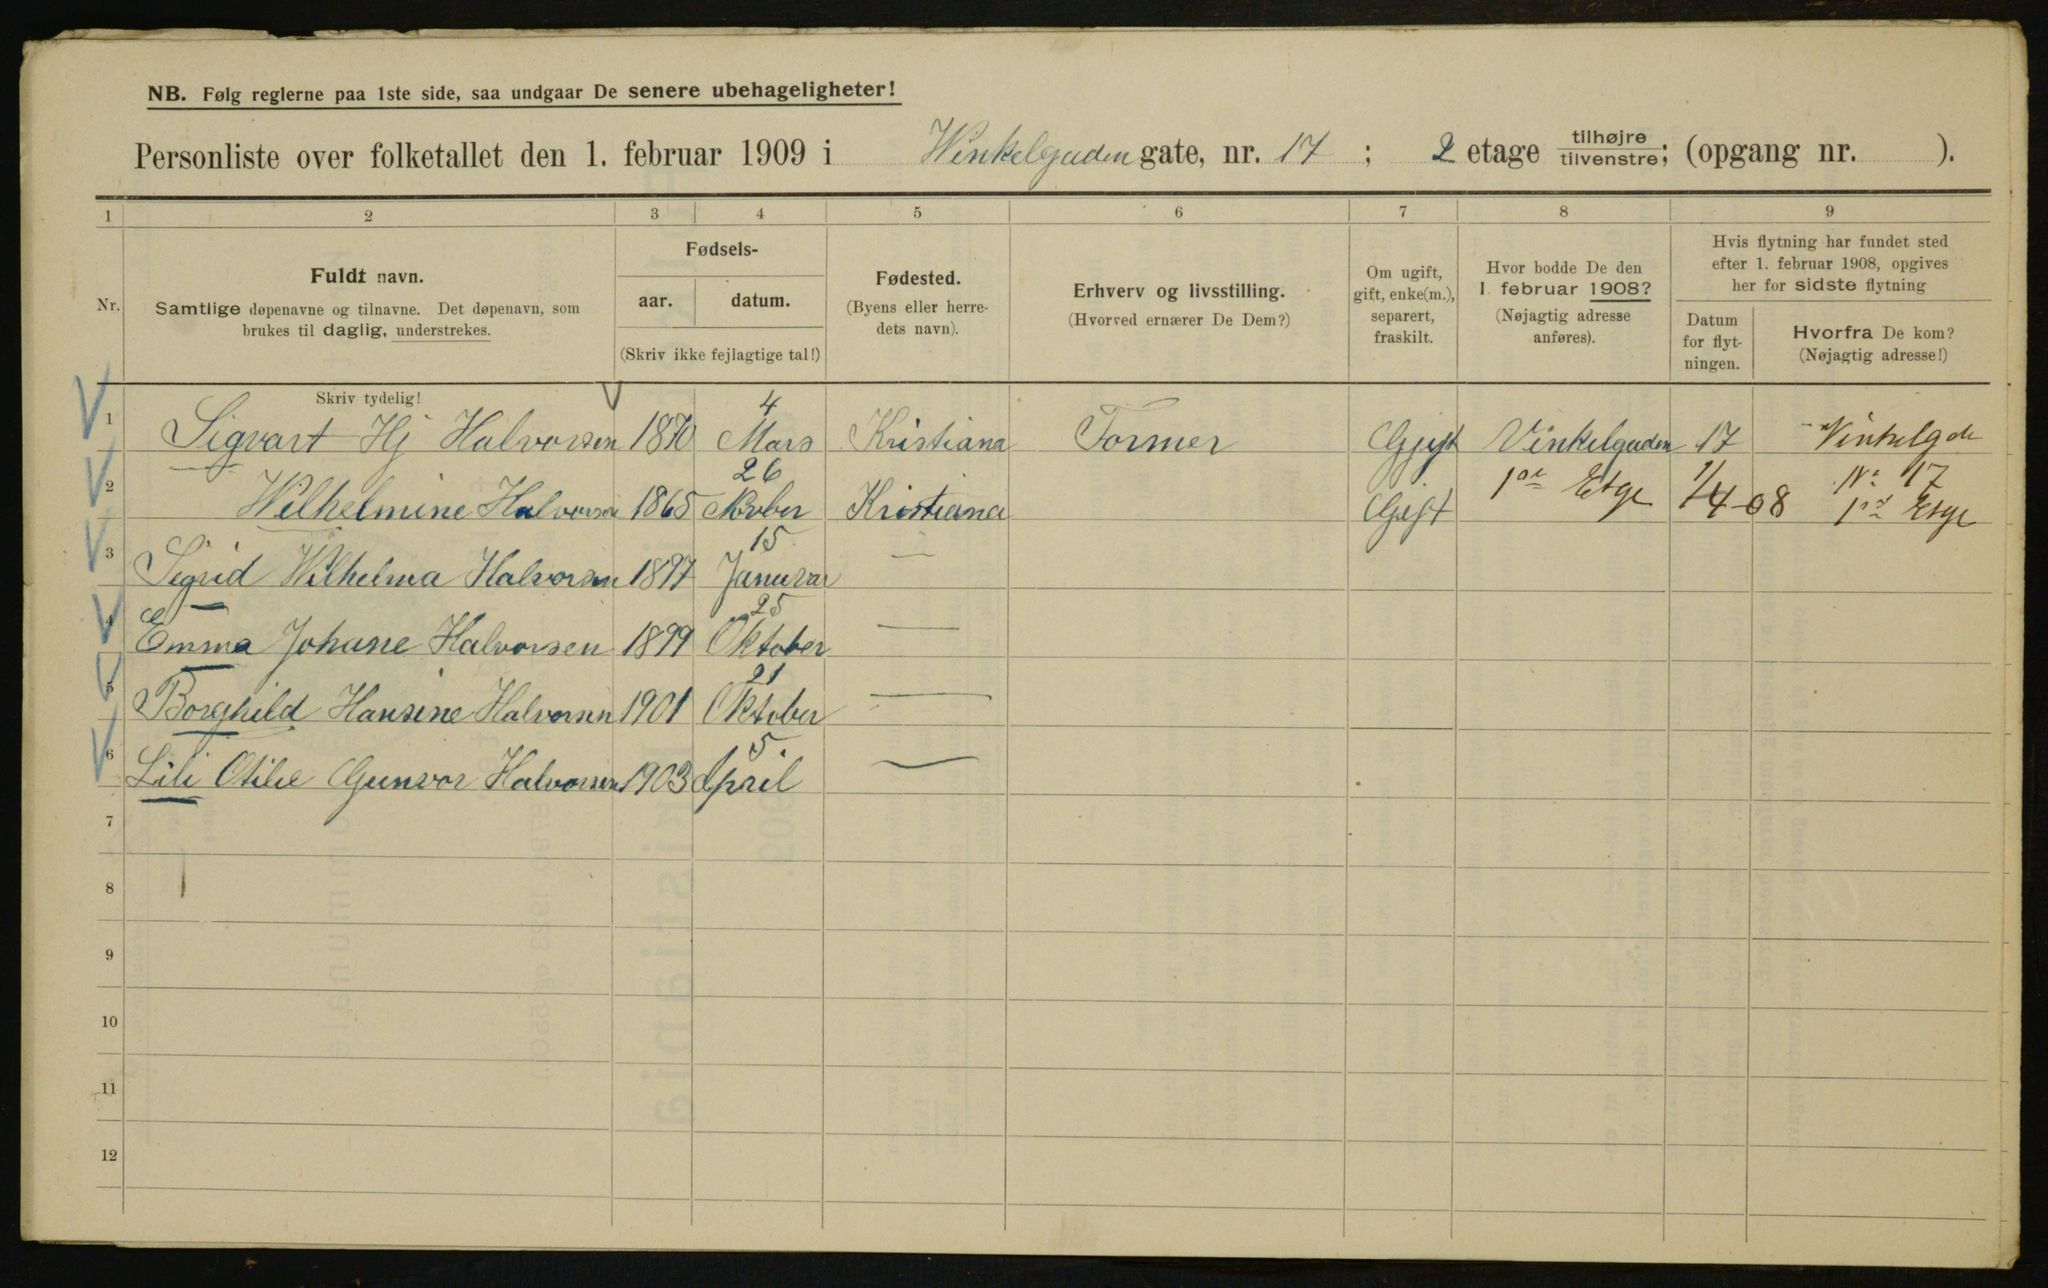 NB. Følg reglerne paa 1ste side, saa undgaar De senere ubehageligheter!
Personliste over folketallet den 1. februar 1909 i Winkelgaden gate, nr. 17 ; 2 etage tilhøjre/tilvenstre; (opgang nr. ).
1 2 3 4 5 6 7 8 9
Nr.
Fuldt navn.
Samtlige døpenavne og tilnavne. Det døpenavn, som
brukes til daglig, understrekes.
Fødsels-
aar. datum.
(Skriv ikke fejlagtige tal!)
Fødested.
(Byens eller herre-
dets navn).
Erhverv og livsstilling.
(Hvorved ernærer De Dem?)
Om ugift,
gift, enke(m.),
separert,
fraskilt.
Hvor bodde De den
1. februar 1908?
(Nøjagtig adresse
anføres).
Hvis flytning har fundet sted
efter 1. februar 1908, opgives
her for sidste flytning
Datum
for flyt-
ningen.
Hvorfra De kom?
(Nøjagtig adresse!)
Skriv tydelig!
1 Sigvart Hj Halvorsen 1870 4 Mars Kristiana Former Gift Vinkelgaden 17 Vinkelgde
2 Wilhelmine Halvorsen 1865 26 Kristiana Gift 1ste Etge 1/4-08 No 17 1ste Etge
3 Sigrid Wilhelma Halvorsen 1897 15 Januar —
4 Emma Johane Halvorsen 1899 25 Oktober —
5 Borghild Hansine Halvorsen 1901 21 Oktober —
6 Lili Otilie Gunvor Halvorsen 1903 5. April —
7
8
9
10
11
12